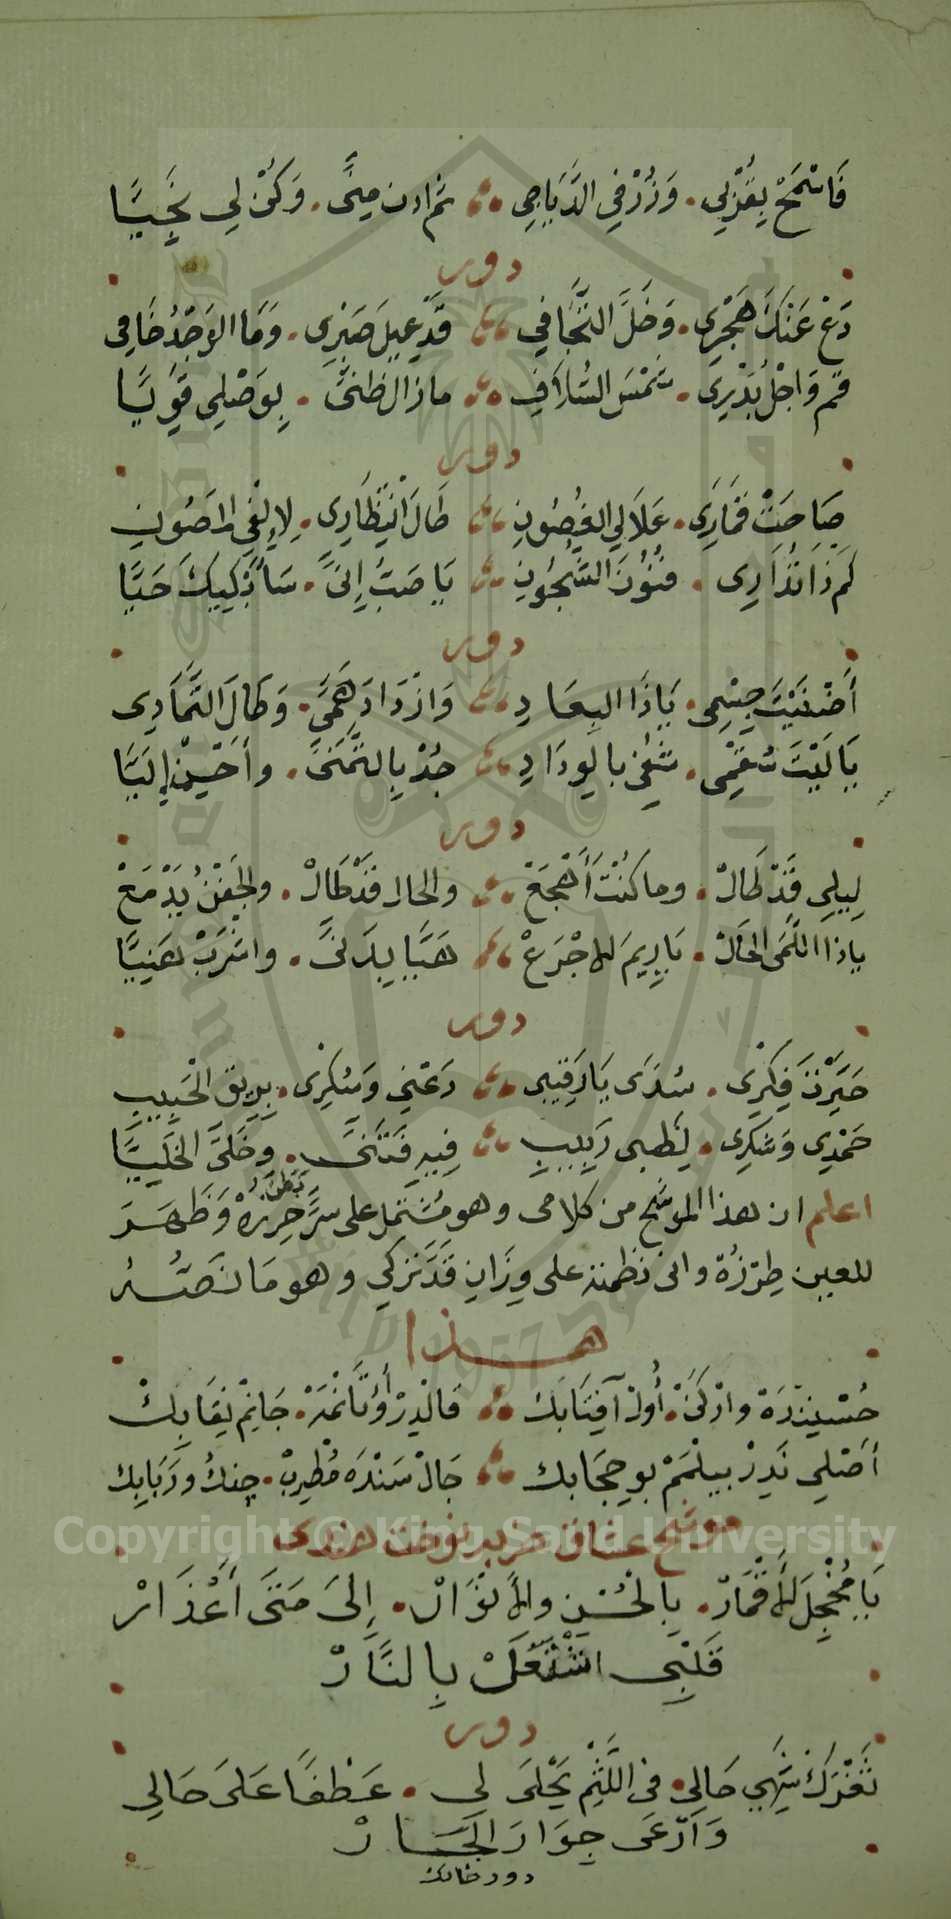 فَاسْمَحْ بِقُرْبِي . وَزُرْ فِي الدَّيَاجِي ∴ ثم ادن مِنَّى . وَكُنْ لِي نَجِيَّا
دور
دَعْ عَنْكَ هَجْرِي . وَخَلَّ التَّجَافِي ∴ قَدْ عِيلَ صَبْرِى . وَمَا الوَجْدُ خَافِى
قم وَاجْلُ بَدْرِى . شَمْسَ السُّلَافِ ∴ مازال ظنى . بِوَصْلِي قَوِيَّا
دور
صَاحَتْ قَمَارِى . عَلَا لِي الغُصُونِ ∴ طَالَ انْتِظَارِى . لِإِلْفِي المَصُونِ
كَمْ ذَا تُدَارِى . فُنُونَ الشُّجُونِ ∴ يَا صَبُّ إِنَّى . سَأُبْكِيكَ حَيَّا
دور
أَضْنَيْتَ جِسْمِى . يَاذَا البِعَادِ ∴ وَازْدَادَ هَمِّى . وَطَالَ التَّمَادِى
يَا لَيْتَ سُقْمِى . شُفِى بالوِدَادِ ∴ جُدْ بِالتَّمَنَّى . وأَحْسِنْ إِلَيَّا
دور
لِيلِى قَدْ طَالْ . وما كُنْتْ أَهْجَعْ ∴ والحال قَدْ طَالْ . والجَفْنْ يِدْمَعْ
ياذا اللَّمَى الحَالْ . يَا رِيمَ الاجْرَعْ ∴ هَيَّا يِدَنَّى . واشْرَبْ هَنِيَّا
دور
حَيَّرْتَ فِكْرِى . سُدَى يَا رَقِيبِى ∴ دَعْنِي وَسُكْرِى . بِرِيقِ الْحَبِيبِ
حَمْدِي وَشُكْرِى . لِظَبى رَبِيبِ ∴ فِيهِ فَتَنَّى . وخَلَّى الخَلِيَّا
اعلم ان هذا الموشح من كلامى وهو مُشتمل على سرَّ حِرزه بَطَنْ وَظَهَرَ
للعين طِرْزُهُ وانى نظمته على وِزَانِ قَدَّ تركي وهو مَا نَصُّهُ
هذا
حُسْنِنْدَهْ وارْكَنْ . أُولْ آفِتَابَكْ ∴ قالْدِرْ أُوتَانْمَهْ . جَانِمْ نِقَابِكْ
أَصْلِي نَدِرْ بيلْمَمْ بو حِجَابك ∴ جَالْ سَنْدَه مُطْرِبْ . چنكْ ورَبَابِكْ
يَا مُخْجِلَ الْأَقْمَارْ . بِالْحُسْنِ والْأَنْوَارْ . إِلَى مَتَى أَعْذَارْ
قَلْبِى اشْتَعَلْ بِالنَّارْ
دور
ثَغْرَكْ شَهِي حَالِي . فى اللَّثْمِ يَحْلَى لِى . عَطْفًا عَلَى حَالِى
وَارْعَى جِوَارَ الجَارْ
Copyright © King Saud University